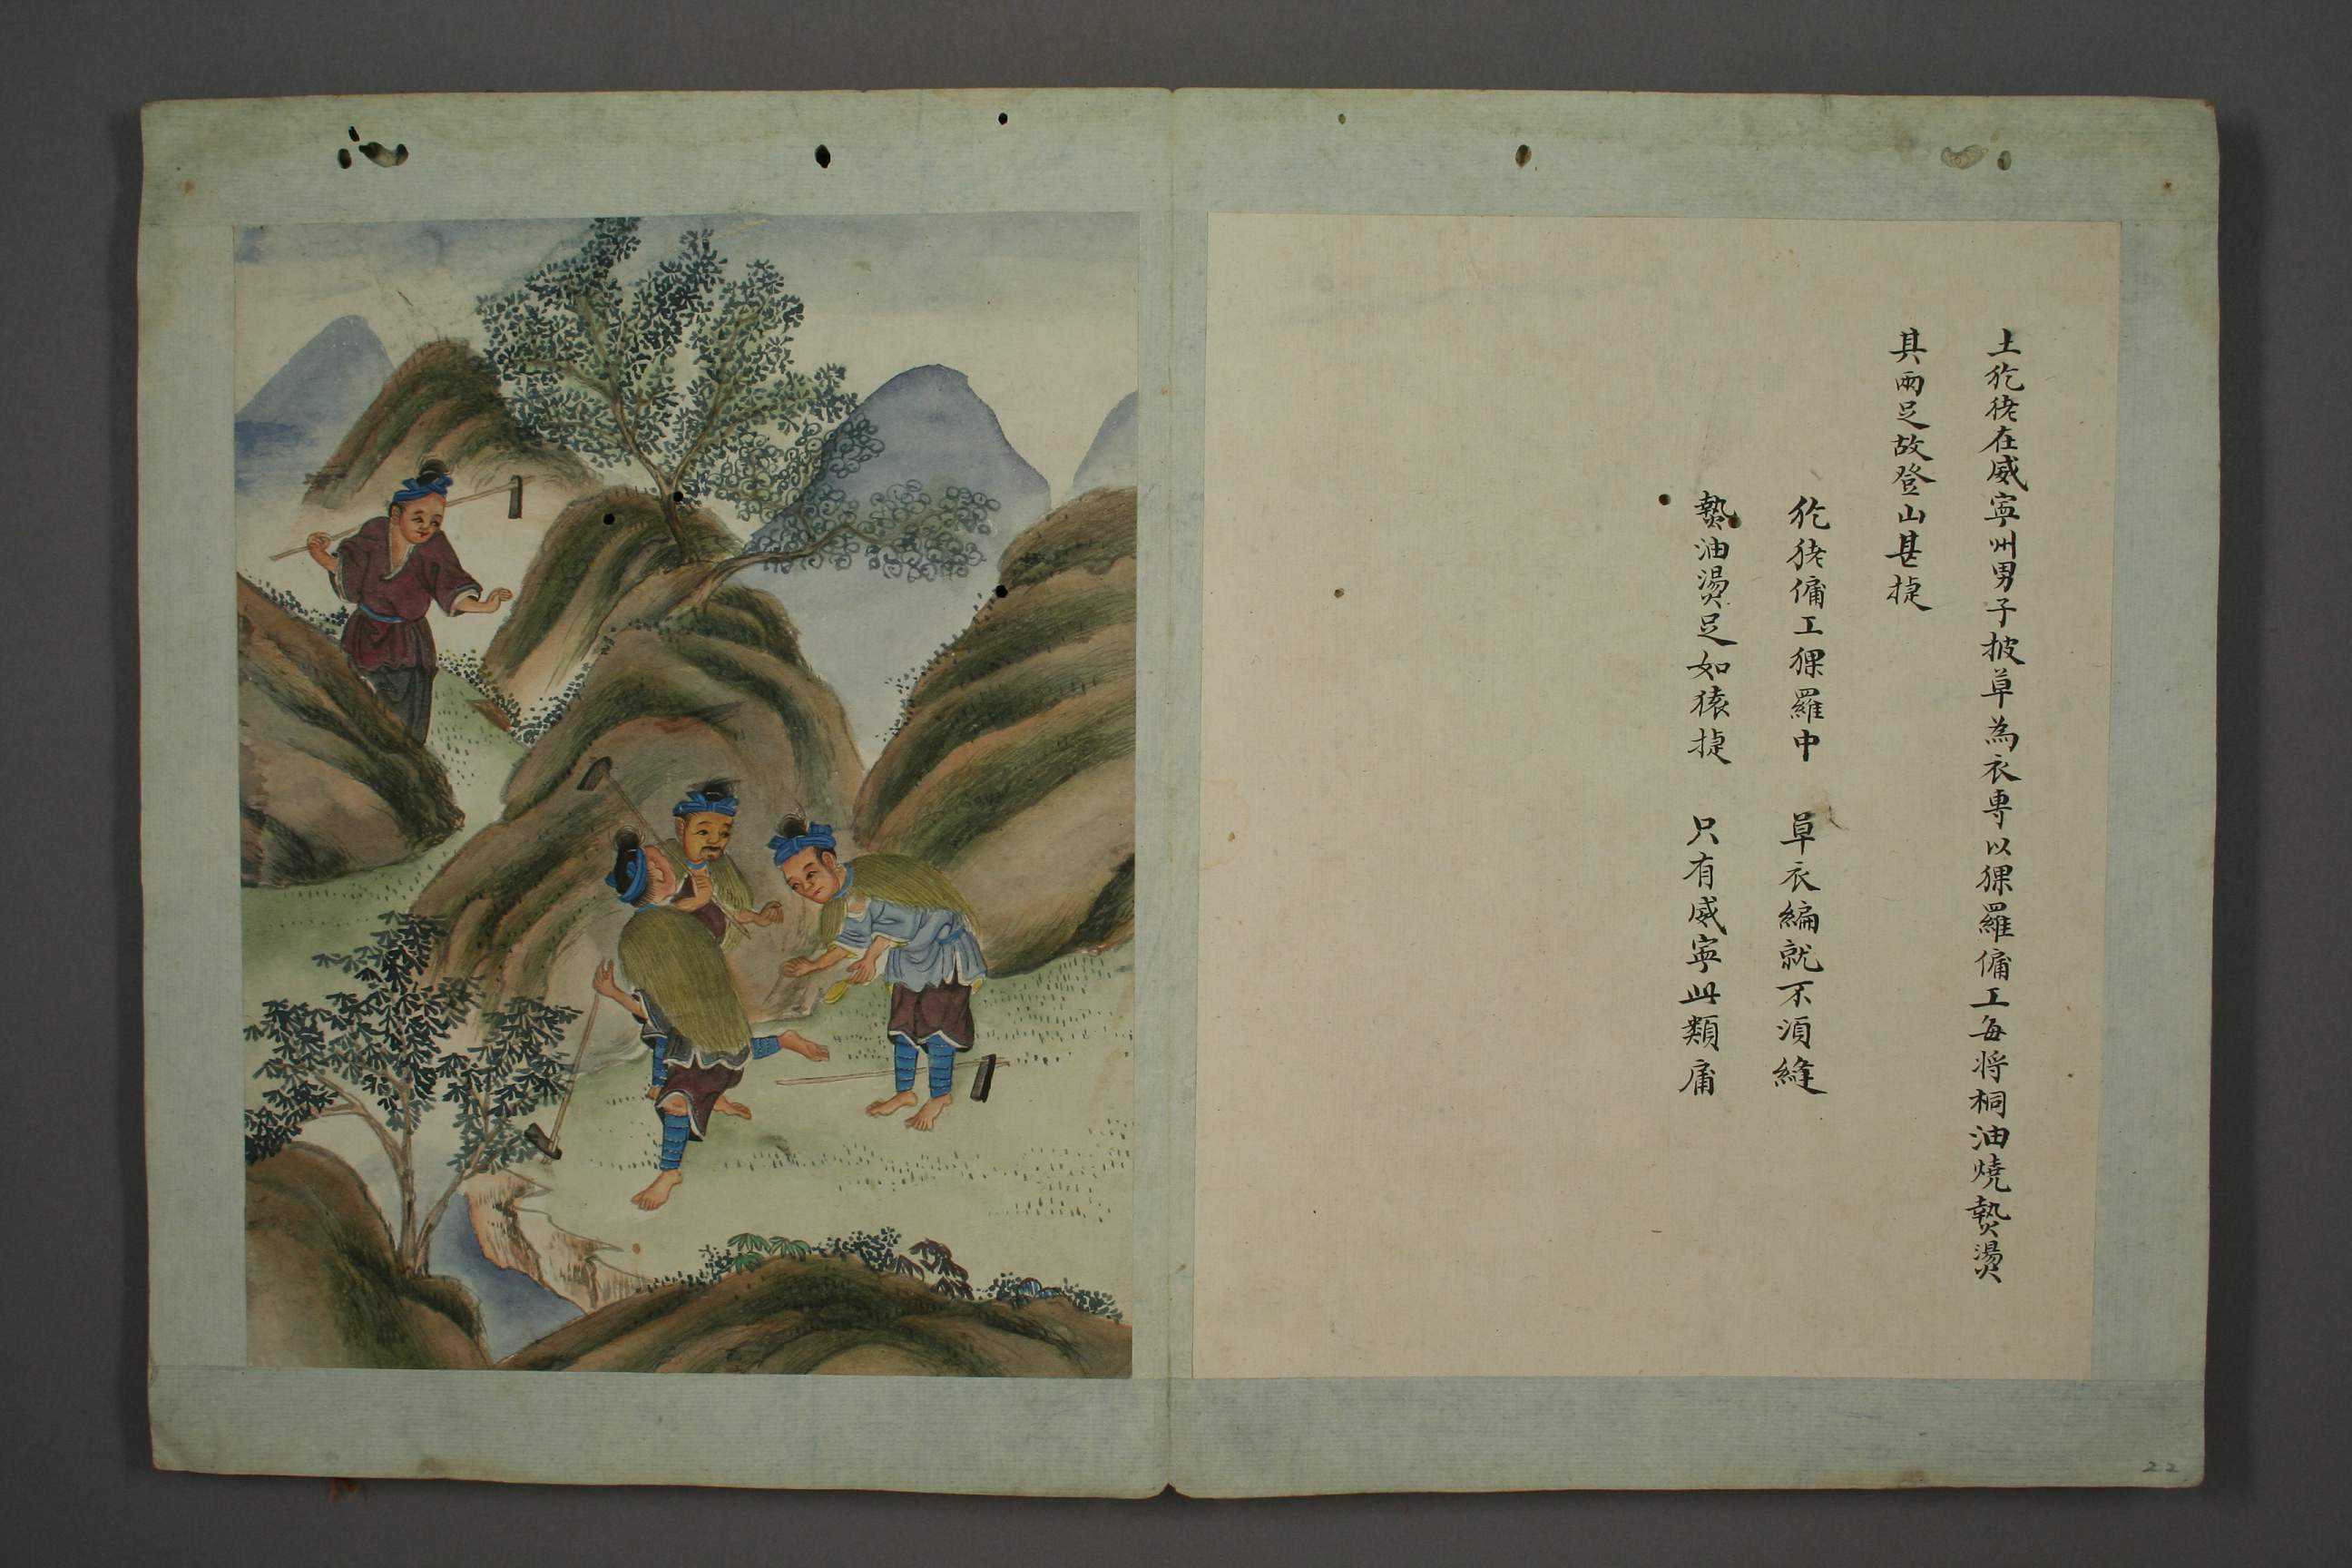 土犵狫在威寧州男子披草為衣専以猓羅傭工每將桐油燒𤍠燙
其兩足故登山甚捷
犵狫傭工猓羅中　草衣編就不湏縫
𤍠油燙足如猿捷　只有威寧此類庸
22